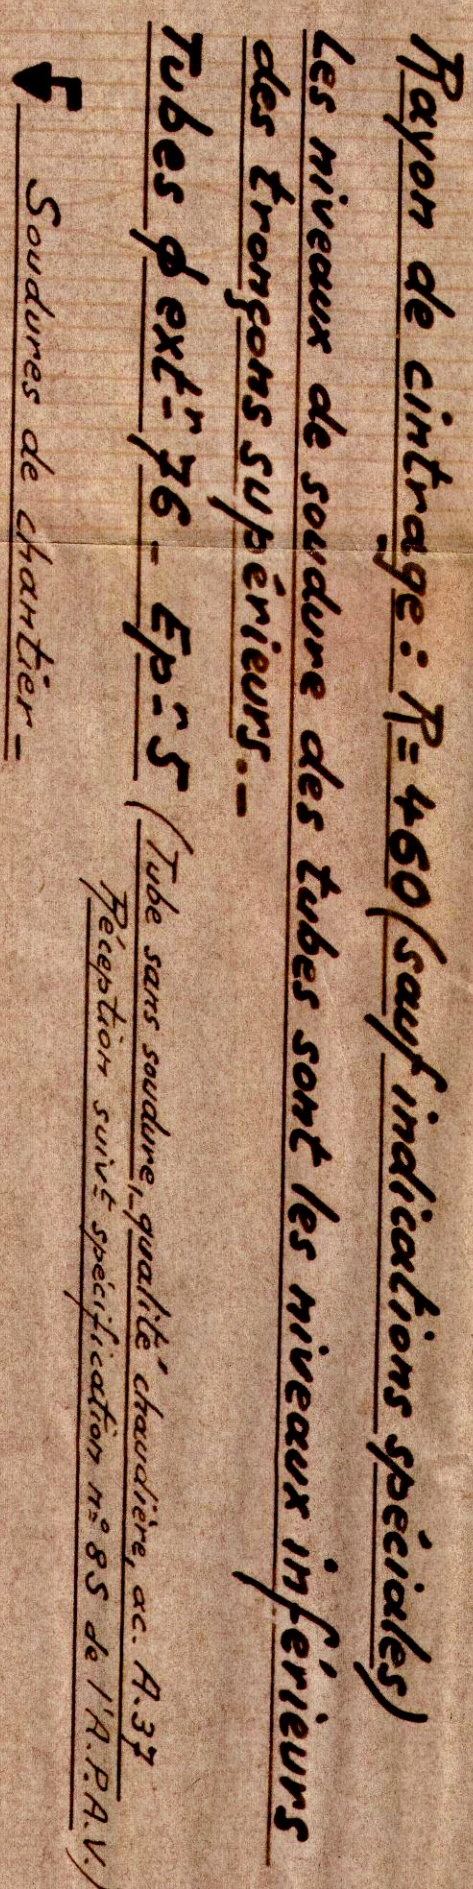 Rayon de cintrage : R = 460 (sauf indications spéciales)
Les niveaux de soudure des tubes sont les niveaux inférieurs
des tronçons supérieurs.-
Tubes ϕ extʳ 76 - Epʳ 5 (Tube sans soudure, qualité chaudière, ac. A.37
Réception suivᵗ spécification nº 85 de l'A.P.A.V.)
Soudures de chantier-